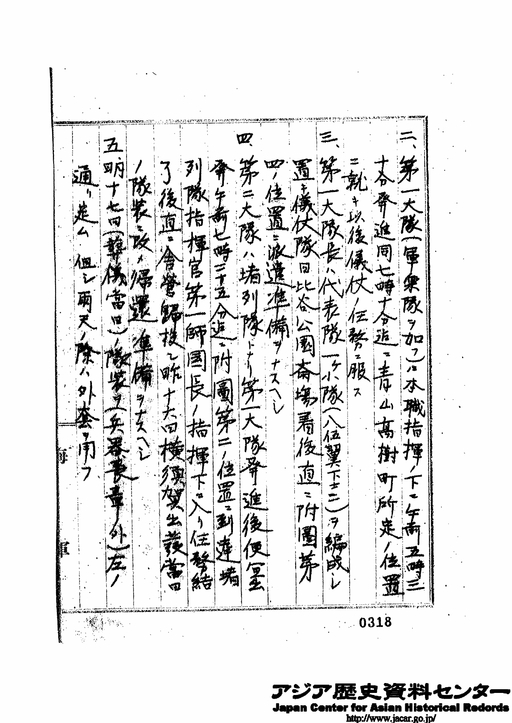 二、第一大隊(軍楽隊ヲ加フ)ハ本職指揮ノ下ニ午前五時三
十分発進同七時十分迄ニ青山高樹町所定ノ位置
ニ就キ以後儀仗ノ任務ニ服ス
三、第一大隊長ハ代表隊一ケ小隊(八伍翼下士二)ヲ編成シ
置キ儀仗隊日比谷公園斎場着後直ニ附図第
四ノ位置ニ派遣準備ヲナスヘシ
四、第二大隊ハ堵列隊トナリ第一大隊発進後便宜
発午前七時二十五分迄ニ附図第二ノ位置ニ到達堵
列隊指揮官第一師団長ノ指揮下ニ入リ任務結
了後直ニ舎営帰投シ昨十六日横須賀出発当日
ノ隊装ニ改メ帰還準備ヲナスヘシ
五、明十七日(葬儀当日)ノ隊装ヲ(兵器長章ノ外)左ノ
通リ定ム 但シ雨天ノ際ハ外套ヲ用フ
海軍
0318
アジア歴史資料センター
Japan Center for Asian Historical Records
http://www.jacar.go.jp/